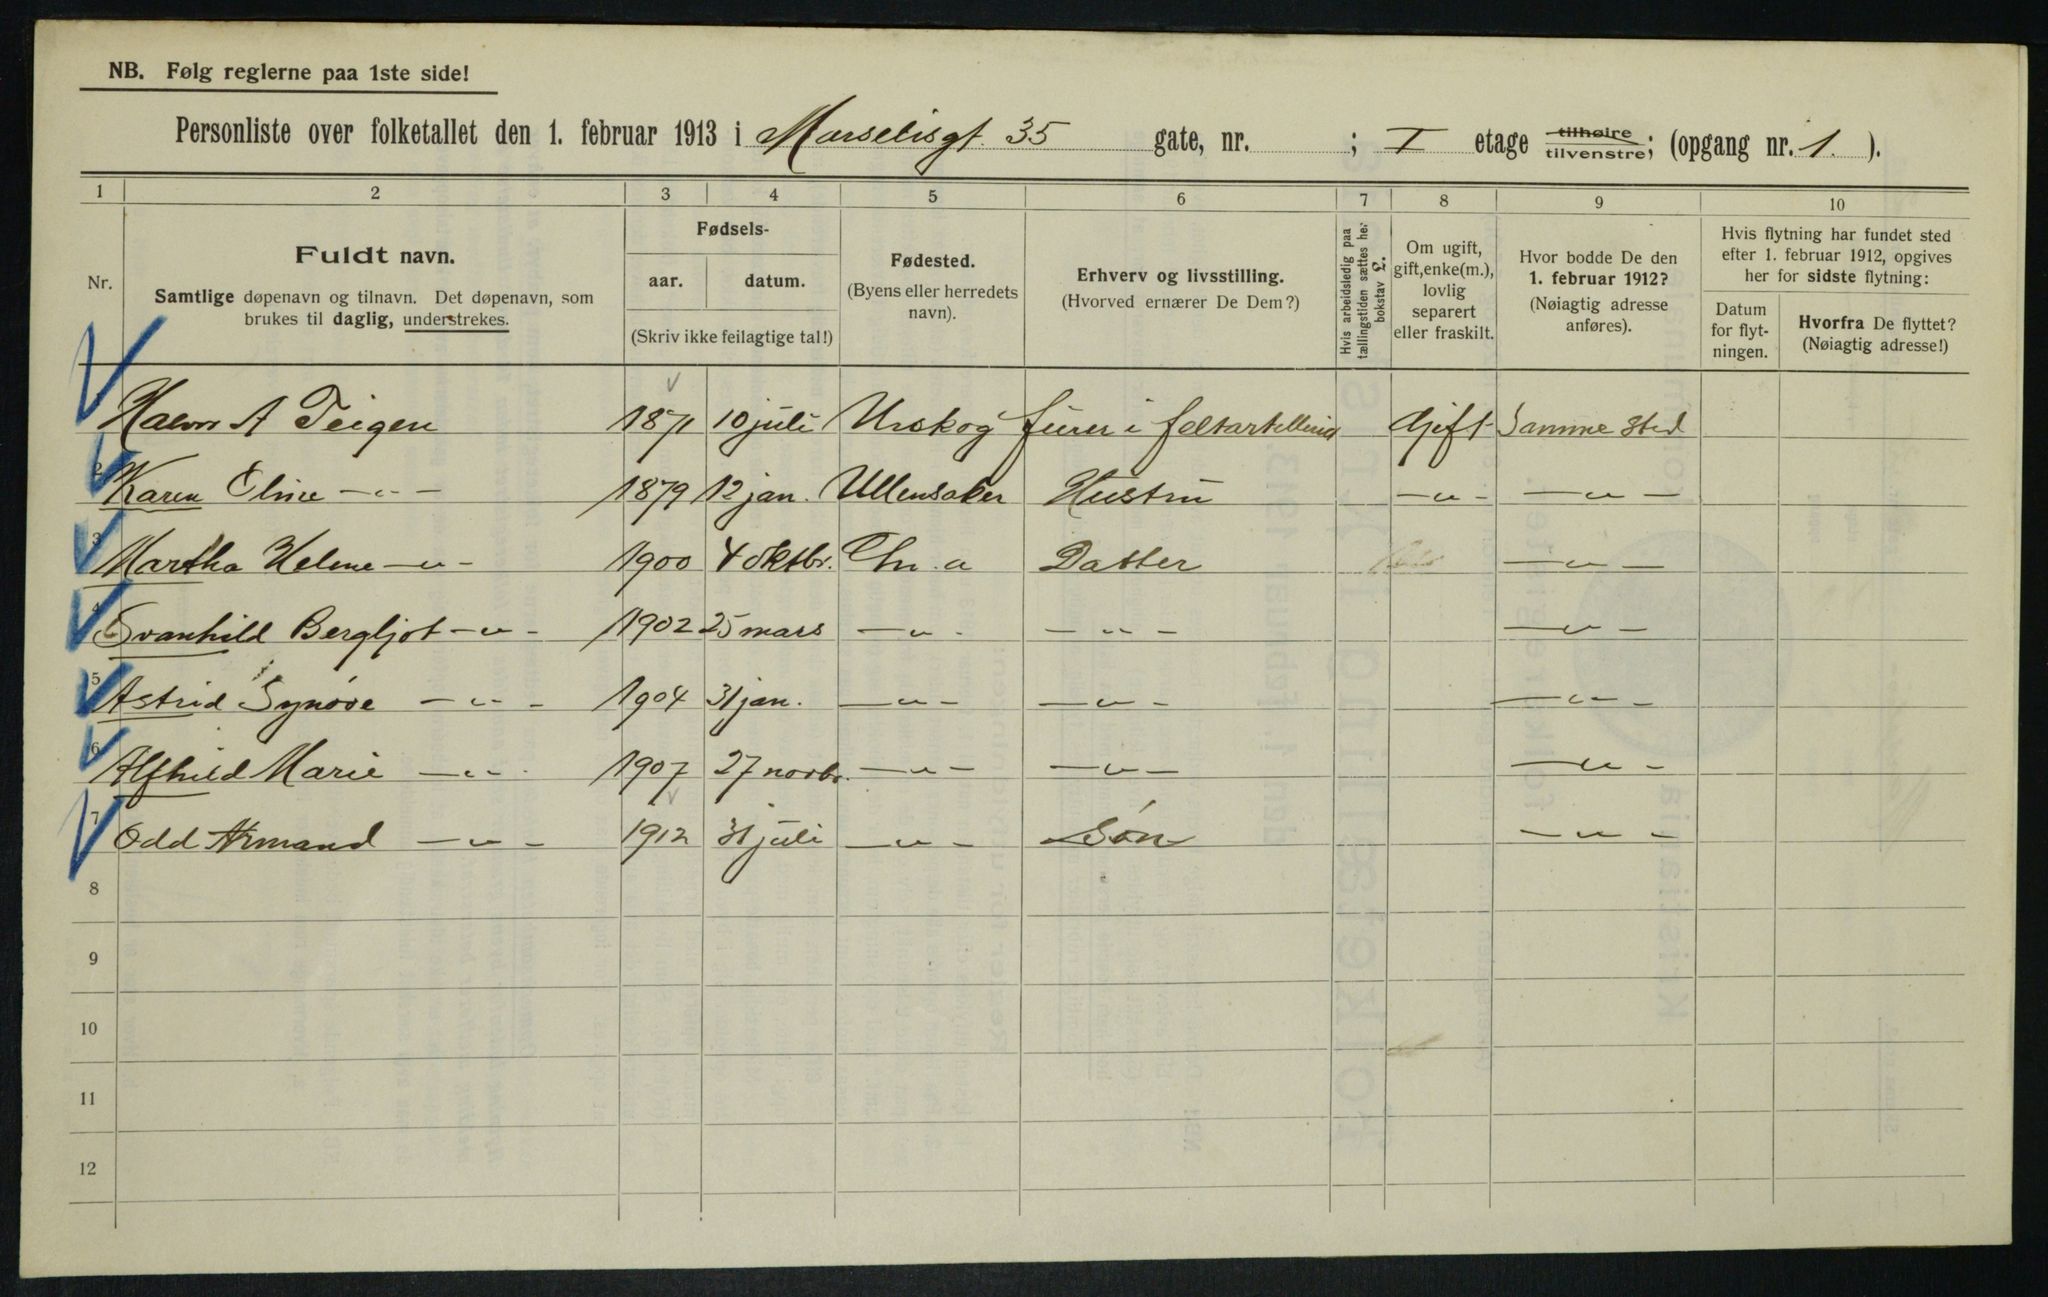 NB. Følg reglerne paa 1ste side!
Personliste over folketallet den 1. februar 1913 i Marselisgt. 35 gate, nr. ; I etage tilhøire tilvenstre; (opgang nr. 1. ).
1 2 3 4 5 6 7 8 9 10
Nr.
Fuldt navn.
Samtlige døpenavn og tilnavn. Det døpenavn, som
brukes til daglig, understrekes.
Fødsels-
aar. datum.
(Skriv ikke feilagtige tal!)
Fødested.
(Byens eller herredets
navn).
Erhverv og livsstilling.
(Hvorved ernærer De Dem?)
Hvis arbeidsledig paa
tællingstiden sættes her
bokstav L.
Om ugift,
gift, enke(m.),
lovlig
separert
eller fraskilt.
Hvor bodde De den
1. februar 1912?
(Nøiagtig adresse
anføres).
Hvis flytning har fundet sted
efter 1. februar 1912, opgives
her for sidste flytning:
Datum
for flyt-
ningen.
Hvorfra De flyttet?
(Nøiagtig adresse!)
A Teigen 1871 10 juli Urskog furer i feltartilleriet Gift Samme sted
2 Karen Eline —〃— 1879 12 jan. Ullensaker Hustru —〃— —〃—
3 Martha Helene —〃— 1900 4 oktbr. Chr.a Datter —〃—
4 Svanhild Bergljot —〃— 1902 25 mars —〃— —〃— —〃—
5 Astrid Synøve —〃— 1904 31 jan. —〃— —〃— —〃—
6 Alfhild Marie —〃— 1907 27 novbr. —〃— —〃— —〃—
7 Odd Armand —〃— 1912 31 juli —〃— Søn —〃—
8
9
10
11
12